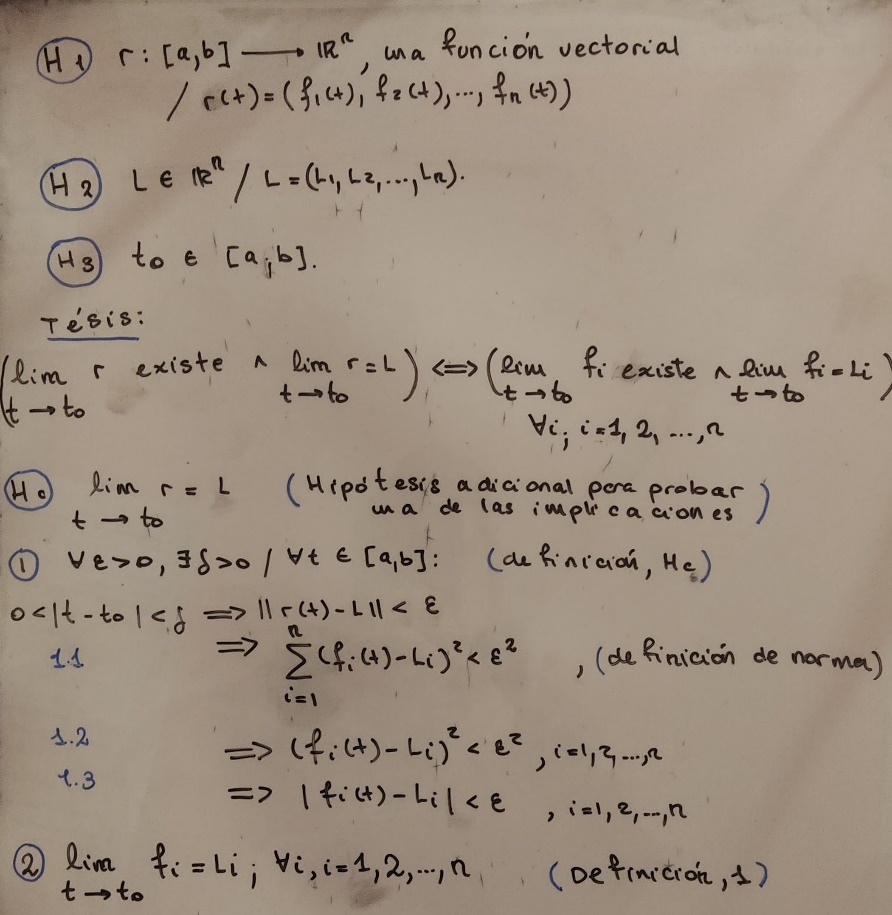 H1 r: [a,b] ⟶ ℝⁿ, una función vectorial
/ r(t)=(f₁(t), f₂(t),..., fₙ(t))
H2 L ∈ ℝⁿ / L = (L₁, L₂,...,Lₙ).
H3 t₀ ∈ [a,b].
Tésis:
(lim r existe ∧ lim r = L) <=> (lim fᵢ existe ∧ lim fᵢ = Lᵢ)
t → t₀ t → t₀ t → t₀ t → t₀
∀i; i=1, 2, ..., n
Hc lim r = L (Hipótesis adicional para probar
t → t₀ una de las implicaciones)
① ∀ε>0, ∃δ>0 / ∀t ∈ [a,b]: (definición, Hc)
0<|t-t₀|<δ => ||r(t)-L|| < ε
1.1 => n∑i=1 (fᵢ(t)-Lᵢ)² < ε² , (definición de norma)
1.2 => (fᵢ(t)-Lᵢ)² < ε² , i=1,2,...,n
1.3 => |fᵢ(t)-Lᵢ| < ε , i=1,2,...,n
② lim fᵢ = Lᵢ ; ∀i, i=1,2,...,n (Definición, 1)
t → t₀